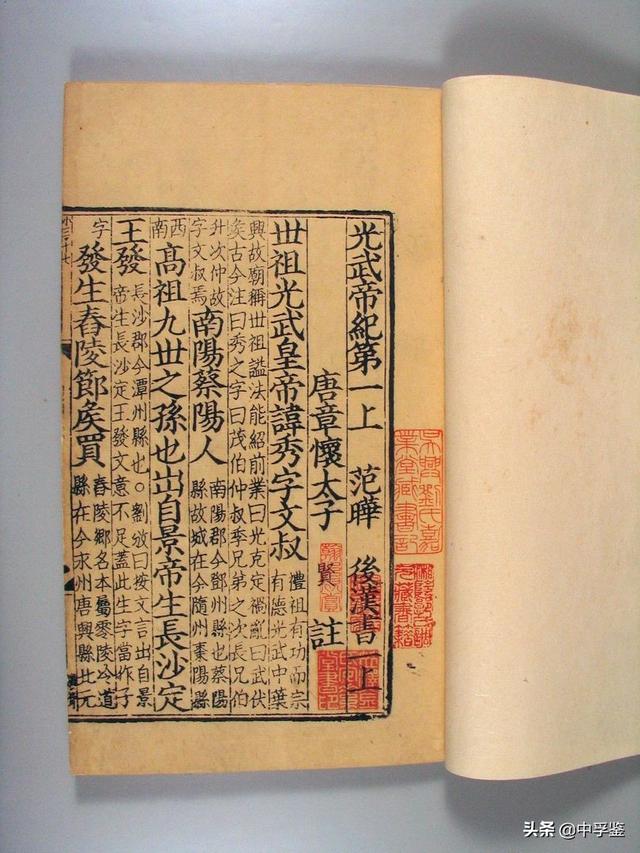 光武帝紀第一上 范曄 後漢書一上
唐章懷太子賢註
丗祖光武皇帝諱秀字文叔
禮祖有功而宗
有德光武中葉
興故廟稱丗祖謚法能紹前業曰光克定禍亂曰武伏
侯古今注曰秀之字曰茂伯仲叔季兄弟之次長兄伯
升次仲故
字文叔焉
南陽蔡陽人
南陽郡今鄧州縣也蔡陽
縣故城在今隨州棗陽縣
西
南
高祖九丗之孫也出自景帝生長沙定
王發
長沙郡今潭州縣也○劉攽曰按文言出自景
帝生長沙定王發文意不足蓋此生字當作子
字
發生舂陵節侯買
舂陵鄉名本屬零陵泠道
縣在今永州唐興縣北元
吳興劉氏嘉
業堂藏書記
头条 @中孚鉴